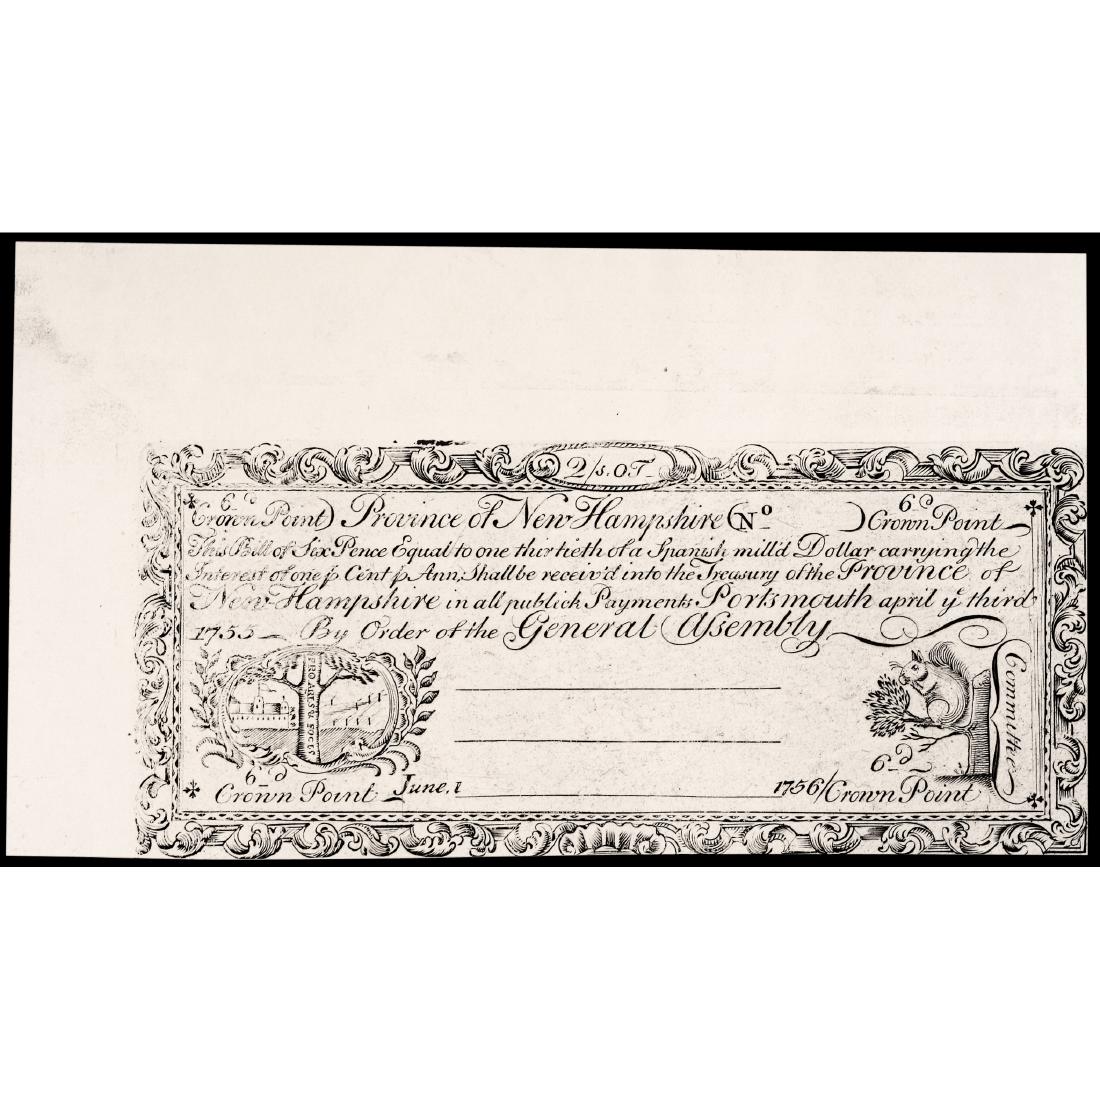 2/s. O.T
6D
Crown Point) Province of New Hampshire (No ) 6D Crown Point
This Bill of Six Pence Equal to one thirtieth of a Spanish mill'd Dollar carrying the
Interest of one ⅌ Cent ⅌ Ann; Shall be receiv'd into the Treasury of the Province of
New Hampshire in all publick Payments Portsmouth april ye third
1755 By Order of the General Assembly
PRO ARIS & FOCIS
Committee
6D
Crown Point June, 1 1756/
6D
Crown Point